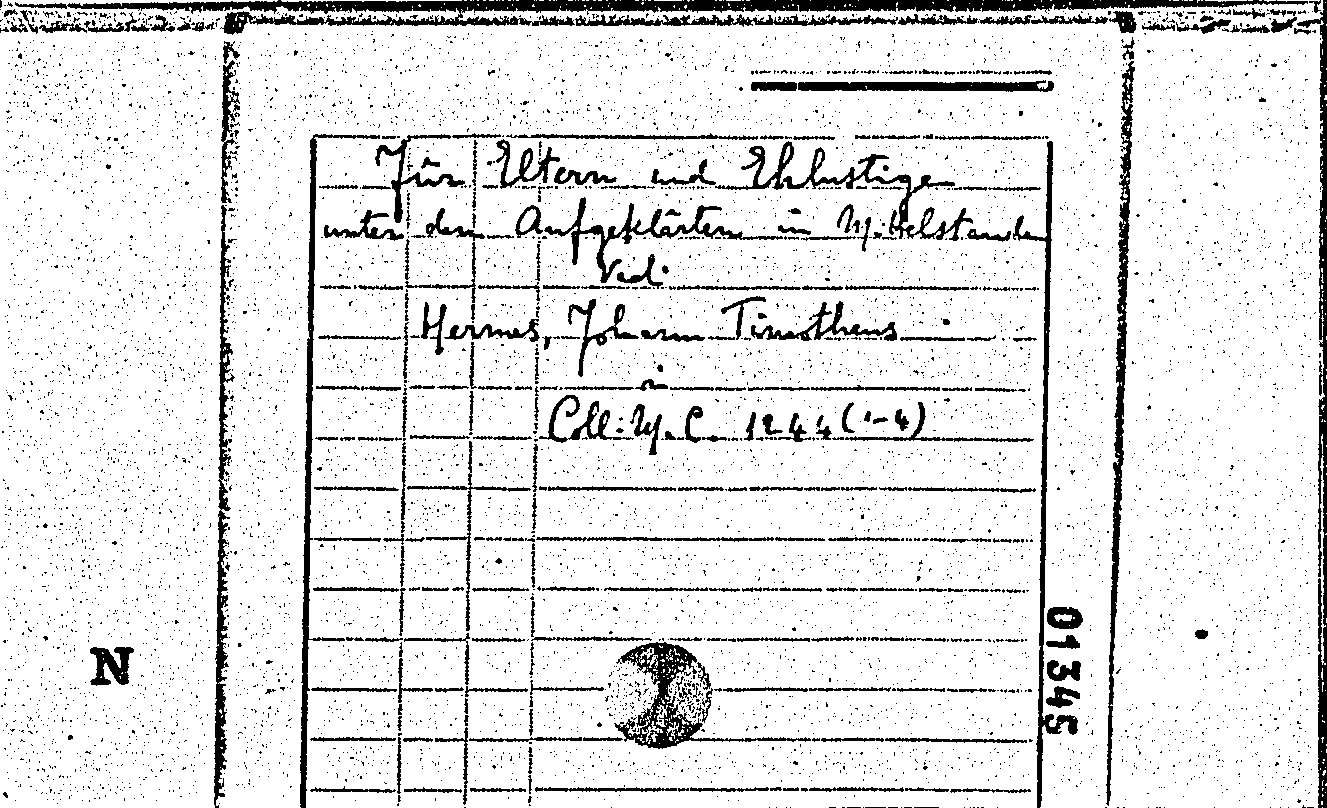 Für Eltern und Ehlustige
unter den Aufgeklärten in Mittelstande
Vid.
Hermes, Johann Timotheus
in
Coll: M. C. 1244 (1-4)
01345
N